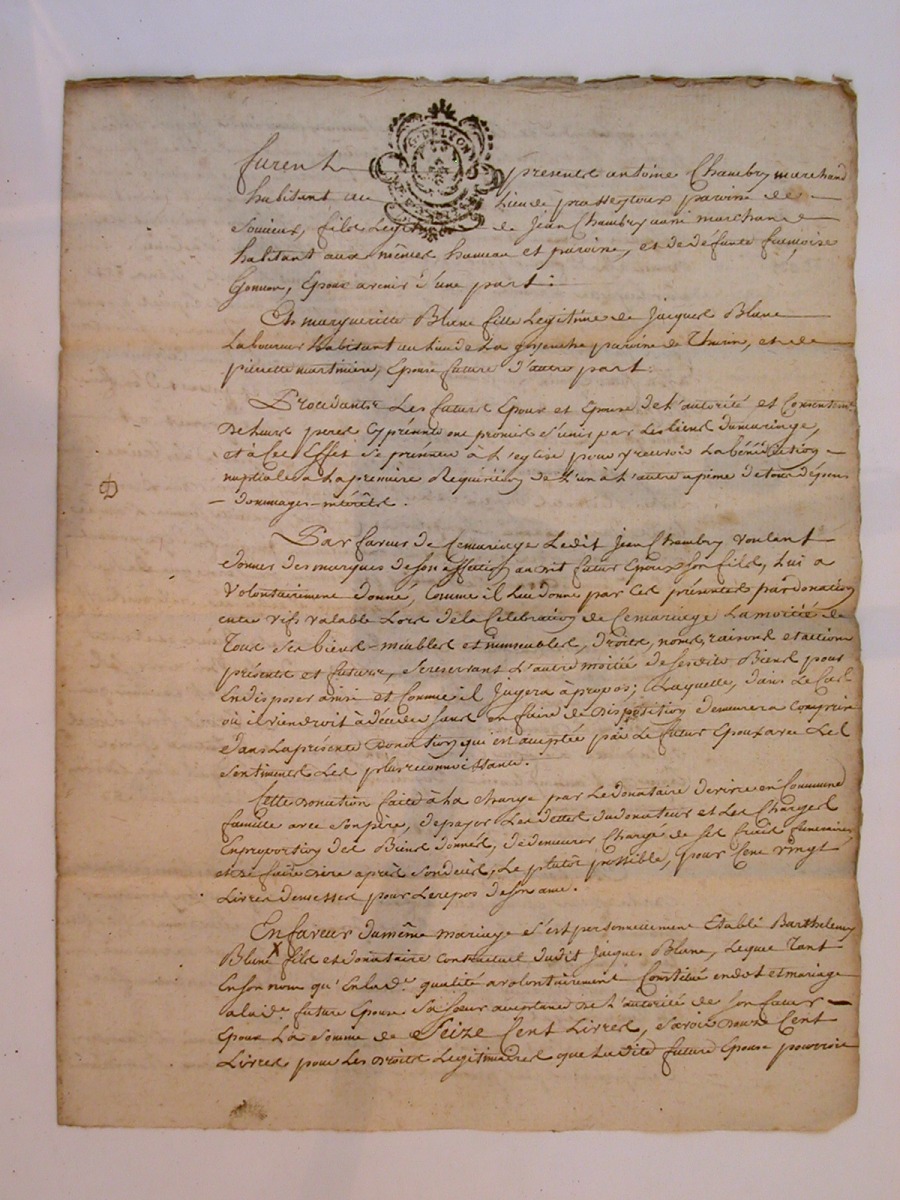 G. DE LYON
furent présents antoine Chambry marchand
habitant au Lieu de prasseytoux paroisse de
Souieux, fils Legitime de Jean Chambry aussi marchand
habitant aux mêmes hameau et paroisse, et de défunte françoise
Gonnon, Epoux avenir d'une part.
Et marguerite Blanc fille Legitime de Jacques Blanc
Laboureur habitant au Lieu de La paroisse de Thurin, et de
pierrette martinière, Epouse future d'autre part.
Procédants Les futurs Epoux et Epouse de L'autorité et Consentemt
De Leurs peres Cy présents ont promis s'unir par Les Liens Du mariage,
et a Cet Effet Se présenter a L'eglise pour y recevoir La bénédiction
nuptiale a La premiere Requisition de L'un a L'autre a peine de tous dépens
dommages-intérêts.
Par faveur de Ce mariage Ledit Jean Chambry voulant
donner des marques de son affection audit futur Epoux son fils, Lui a
Volontairement donné, Comme il Lui donne par Ces présentes par donation
entre vifs valable Lors de La Célébration de Ce mariage La moitié de
Tous Ses biens-meubles et immeubles, droits, noms, raisons et actions
présents et futurs, se reservant L'autre moitié de Sesdits Biens pour
En disposer ainsi et Comme il jugera à propos; Laquelle, dans Le Cas
où il viendroit à décéder sans en faire de Disposition demeurera Comprise
dans La présente Donation qui est acceptée par Le futur Epoux avec Les
Sentiments Les plus reconnoissants.
Cette Donation faite à La Charge par Le donataire de vivre en Commune
famille avec Son père, de payer Les dettes du donateur et Les Charges
En proportion des Biens donnés, de demeurer Chargé de Ses frais funeraires
et de faire dire après Son décès, Le plutôt possible, pour Cent vingt
Livres de messes pour Le repos de Son ame.
En faveur du même mariage s'est personnellement Etabli Barthelemy
Blanc fils et donataire Contractuel dudit Jacques Blanc, Lequel Tant
En Son nom qu'En Lade. qualité a volontairement Constitué en dot et mariage
a lade. future Epouse Sa Soeur acceptante de L'autorité de Son futur
Epoux La Somme de Seize Cent Livres, Savoir Douze Cent
Livres pour Les Droits Legitimaires que Ladite future Epouse pourroit